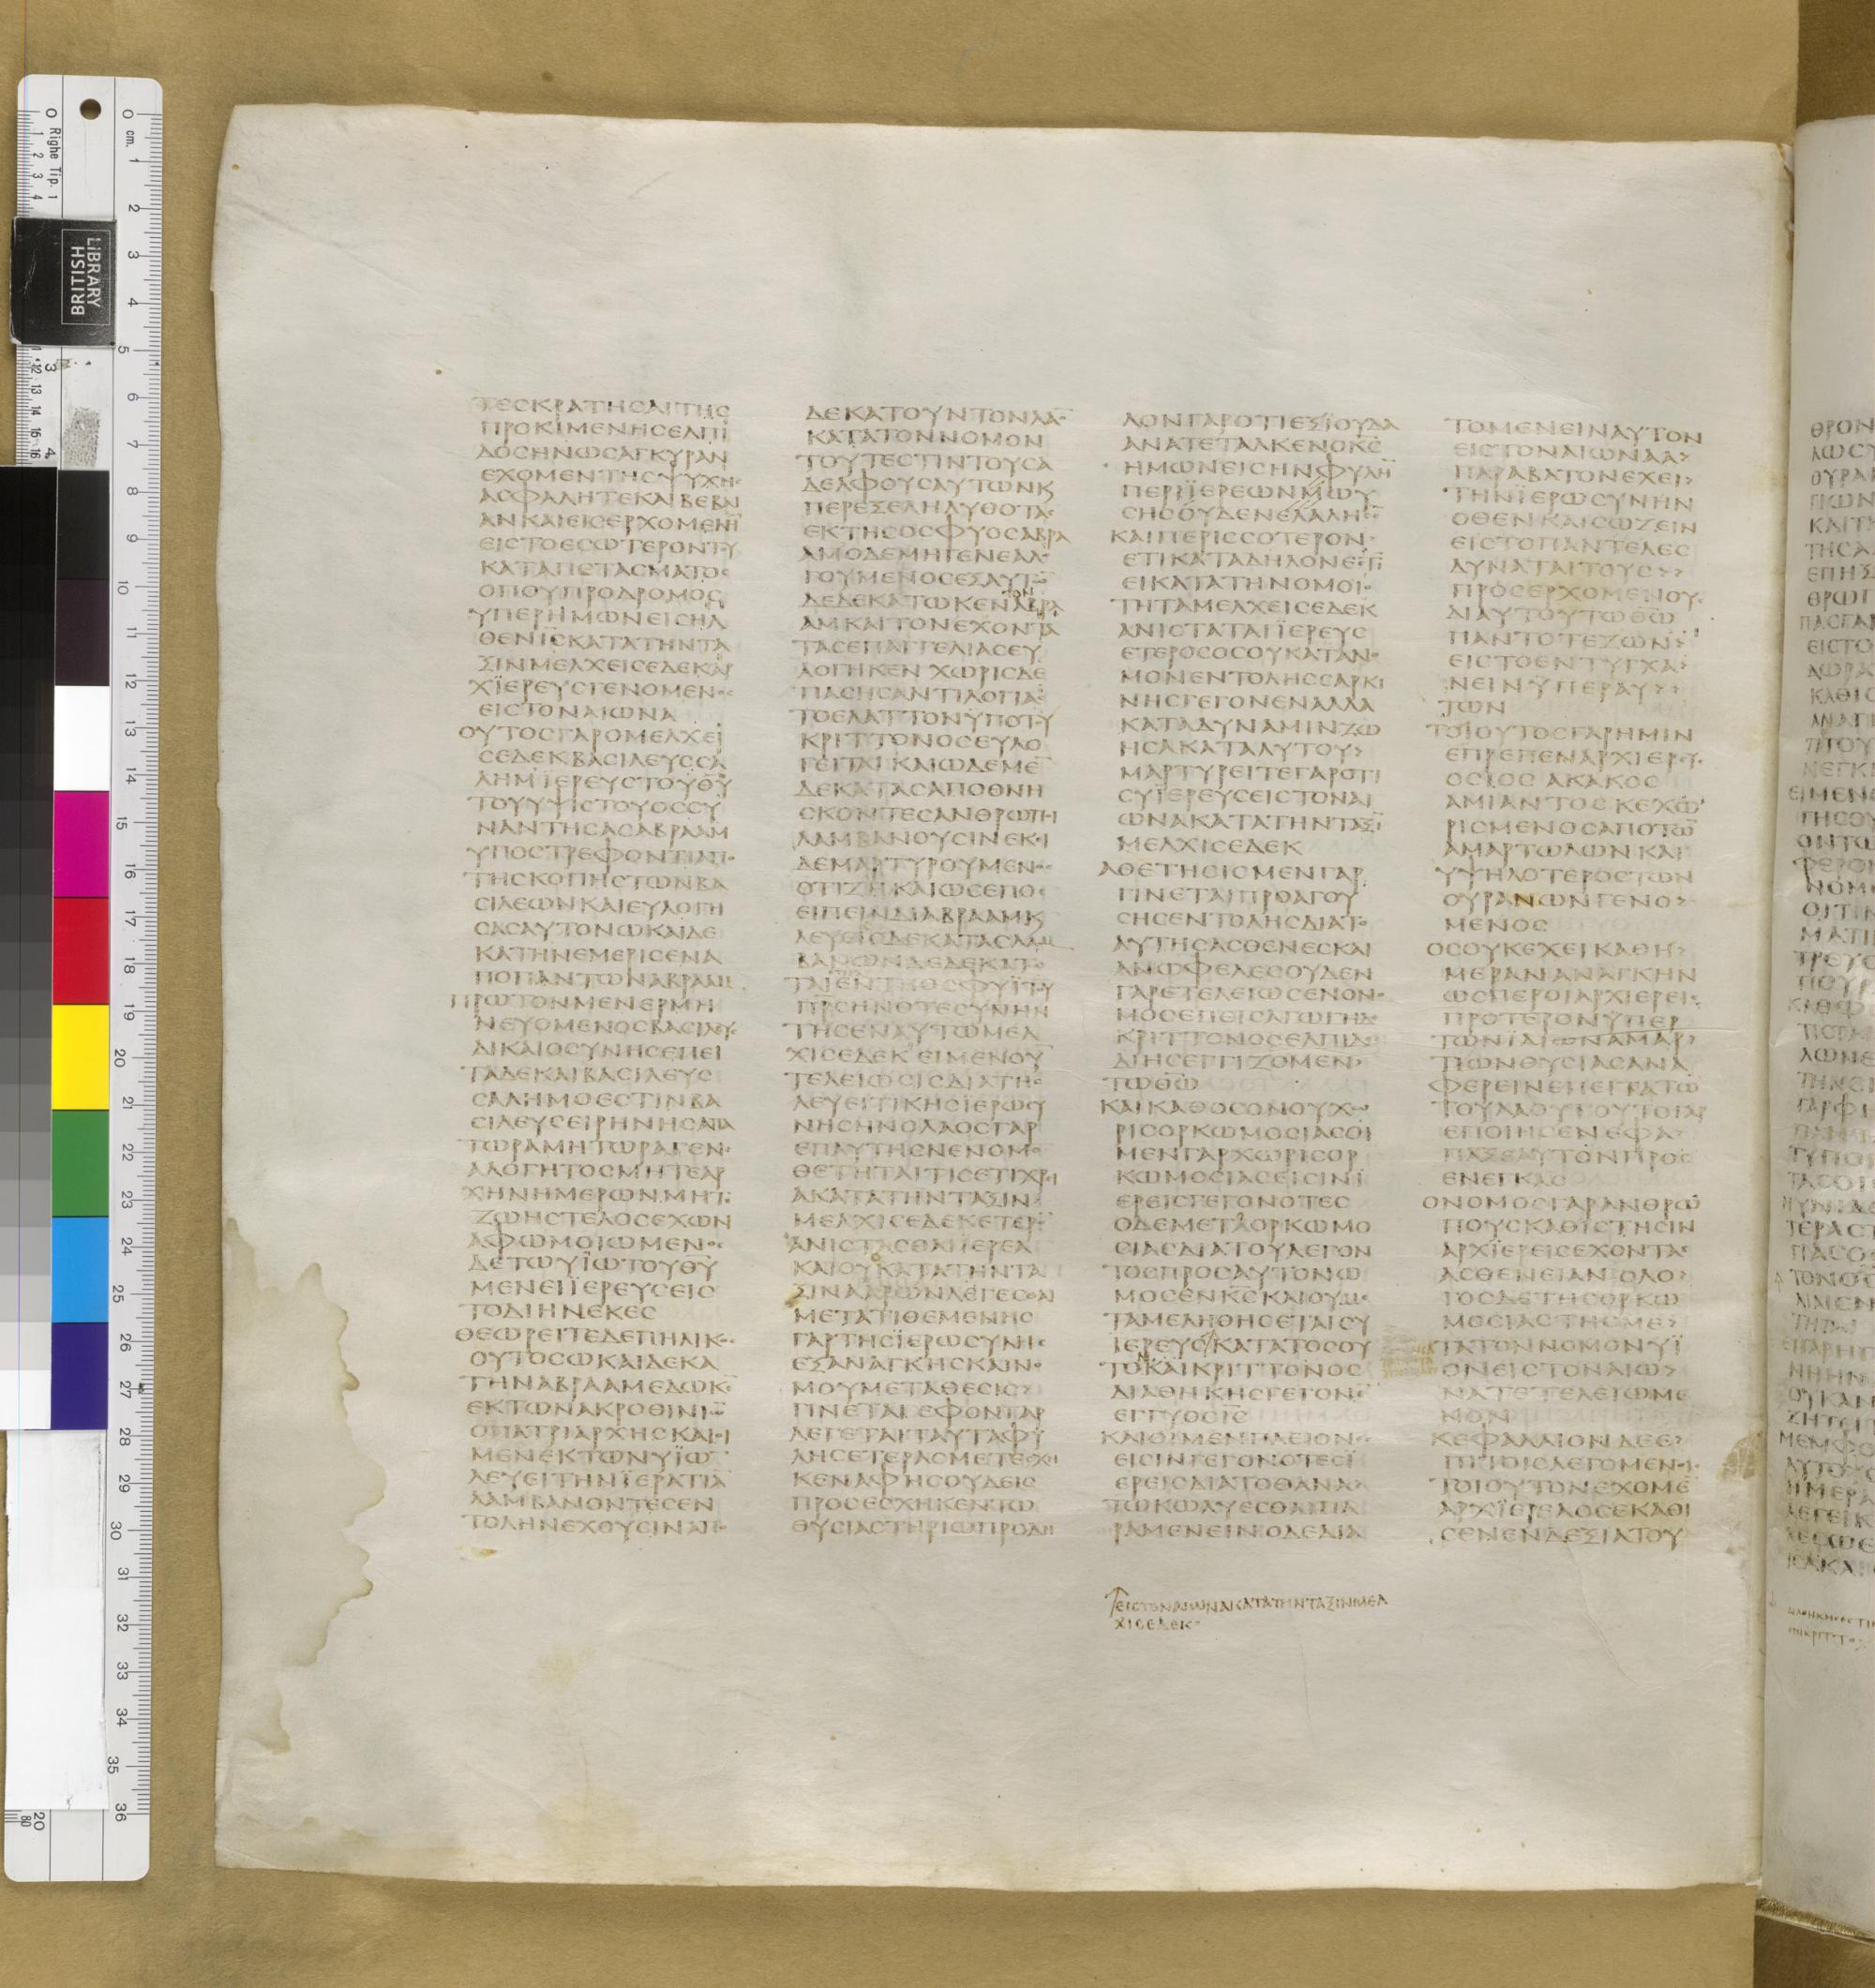 ΤΕΣΚΡΑΤΗΣΑΙΤΗΣ
ΠΡΟΚΙΜΕΝΗΣΕΛΠΙ
ΔΟΣΗΝΩΣΑΓΚΥΡΑΝ
ΕΧΟΜΕΝΤΗΣΨΥΧΗΣ
ΑΣΦΑΛΗΤΕΚΑΙΒΕΒΑΙ
ΑΝΚΑΙΕΙΣΕΡΧΟΜΕΝΗ̅
ΕΙΣΤΟΕΣΩΤΕΡΟΝΤΟΥ
ΚΑΤΑΠΕΤΑΣΜΑΤΟΣ
ΟΠΟΥΠΡΟΔΡΟΜΟΣ
ΥΠΕΡΗΜΩΝΕΙΣΗΛ
ΘΕΝΙ̅Σ̅ΚΑΤΑΤΗΝΤΑ
ΞΙΝΜΕΛΧΕΙΣΕΔΕΚΑΡ
ΧΪΕΡΕΥΣΓΕΝΟΜΕΝΟΣ
ΕΙΣΤΟΝΑΙΩΝΑ
ΟΥΤΟΣΓΑΡΟΜΕΛΧΕΙ
ΣΕΔΕΚΒΑΣΙΛΕΥΣΣΑ
ΛΗΜΪΕΡΕΥΣΤΟΥΘ̅Υ̅
ΤΟΥΥΨΙΣΤΟΥΟΣΣΥ
ΝΑΝΤΗΣΑΣΑΒΡΑΑΜ
ΥΠΟΣΤΡΕΦΟΝΤΙΑΠΟ
ΤΗΣΚΟΠΗΣΤΩΝΒΑ
ΣΙΛΕΩΝΚΑΙΕΥΛΟΓΗ
ΣΑΣΑΥΤΟΝΩΚΑΙΔΕ
ΚΑΤΗΝΕΜΕΡΙΣΕΝΑ
ΠΟΠΑΝΤΩΝΑΒΡΑΑΜ
ΠΡΩΤΟΝΜΕΝΕΡΜΗ
ΝΕΥΟΜΕΝΟΣΒΑΣΙΛΕΥΣ
ΔΙΚΑΙΟΣΥΝΗΣΕΠΕΙ
ΤΑΔΕΚΑΙΒΑΣΙΛΕΥΣ
ΣΑΛΗΜΟΕΣΤΙΝΒΑ
ΣΙΛΕΥΣΕΙΡΗΝΗΣΑΠΑ
ΤΩΡΑΜΗΤΩΡΑΓΕΝΕ
ΑΛΟΓΗΤΟΣΜΗΤΕΑΡ
ΧΗΝΗΜΕΡΩΝΜΗΤΕ
ΖΩΗΣΤΕΛΟΣΕΧΩΝ
ΑΦΩΜΟΙΩΜΕΝΟΣ
ΔΕΤΩΥΪΩΤΟΥΘ̅Υ̅
ΜΕΝΕΙΪΕΡΕΥΣΕΙΣ
ΤΟΔΙΗΝΕΚΕΣ
ΘΕΩΡΕΙΤΕΔΕΠΗΛΙΚΟΣ
ΟΥΤΟΣΩΚΑΙΔΕΚΑ
ΤΗΝΑΒΡΑΑΜΕΔΩΚΕ̅
ΕΚΤΩΝΑΚΡΟΘΙΝΙΩ̅
ΟΠΑΤΡΙΑΡΧΗΣΚΑΙΟΙ
ΜΕΝΕΚΤΩΝΥΪΩ̅
ΛΕΥΕΙΤΗΝΪΕΡΑΤΙΑ̅
ΛΑΜΒΑΝΟΝΤΕΣΕΝ
ΤΟΛΗΝΕΧΟΥΣΙΝΑΠΟ
ΔΕΚΑΤΟΥΝΤΟΝΛΑΟ̅
ΚΑΤΑΤΟΝΝΟΜΟΝ
ΤΟΥΤΕΣΤΙΝΤΟΥΣΑ
ΔΕΛΦΟΥΣΑΥΤΩΝΚ
ΠΕΡΕΞΕΛΗΛΥΘΟΤΑΣ
ΕΚΤΗΣΟΣΦΥΟΣΑΒΡΑ
ΑΜΟΔΕΜΗΓΕΝΕΑΛΟ
ΓΟΥΜΕΝΟΣΕΞΑΥΤΩ̅
ΤΟΝ
ΔΕΔΕΚΑΤΩΚΕΝΑΒΡΑ
ΑΜΚΑΙΤΟΝΕΧΟΝΤΑ
ΤΑΣΕΠΑΓΓΕΛΙΑΣΕΥ
ΛΟΓΗΚΕΝΧΩΡΙΣΔΕ
ΠΑΣΗΣΑΝΤΙΛΟΓΙΑΣ
ΤΟΕΛΑΤΤΟΝΫΠΟΤΟΥ
ΚΡΙΤΤΟΝΟΣΕΥΛΟ
ΓΕΙΤΑΙΚΑΙΩΔΕΜΕ̅
ΔΕΚΑΤΑΣΑΠΟΘΝΗ
ΣΚΟΝΤΕΣΑΝΘΡΩΠΟΙ
ΛΑΜΒΑΝΟΥΣΙΝΕΚΕΙ
ΔΕΜΑΡΤΥΡΟΥΜΕΝΟΣ
ΟΤΙΖΗΚΑΙΩΣΕΠΟΣ
ΕΙΠΕΙΝΔΙΑΒΡΑΑΜΚ
ΛΕΥΕΙΣΔΕΚΑΤΑΣΛΑΜ
ΒΑΝΩΝΔΕΔΕΚΑΤΩ
ΠΡΣΗΝΟΤΕΣΥΝΗΝ
ΤΗΣΕΝΑΥΤΩΜΕΛ
ΧΙΣΕΔΕΚΕΙΜΕΝΟΥ̅
ΤΕΛΕΙΩΣΙΣΔΙΑΤΗΣ
ΛΕΥΕΙΤΙΚΗΣΪΕΡΩΣΥ
ΝΗΣΗΝΟΛΑΟΣΓΑΡ
ΕΠΑΥΤΗΣΝΕΝΟΜΟ
ΘΕΤΗΤΑΙΤΙΣΕΤΙΧΡΕΙ
ΑΚΑΤΑΤΗΝΤΑΞΙΝ
ΜΕΛΧΙΣΕΔΕΚΕΤΕΡΟ̅
ΑΝΙΣΤΑΣΘΑΙΪΕΡΕΑ
ΚΑΙΟΥΚΑΤΑΤΗΝΤΑ
ΞΙΝΑΑΡΩΝΛΕΓΕΣΘΑΙ
ΜΕΤΑΤΙΘΕΜΕΝΗΣ
ΓΑΡΤΗΣΪΕΡΩΣΥΝΗΣ
ΕΞΑΝΑΓΚΗΣΚΑΙΝΟ
ΜΟΥΜΕΤΑΘΕΣΙΣ>
ΓΙΝΕΤΑΙΕΦΟΝΓΑΡ
ΛΕΓΕΤΑΙΤΑΥΤΑΦΥ
ΛΗΣΕΤΕΡΑΣΜΕΤΕΣΧΗ
ΚΕΝΑΦΗΣΟΥΔΕΙΣ
ΠΡΟΣΕΣΧΗΚΕΝΤΩ
ΘΥΣΙΑΣΤΗΡΙΩΠΡΟΔΗ
ΛΟΝΓΑΡΟΤΙΕΞΪΟΥΔΑ
ΑΝΑΤΕΤΑΛΚΕΝΟΚ̅Σ̅
ΗΜΩΝΕΙΣΗΝΦΥΛΗ̅
ΠΕΡΙΪΕΡΕΩΝΜΩΥ
ΣΗΣΟΥΔΕΝΕΛΑΛΗΣΕ̅
ΚΑΙΠΕΡΙΣΣΟΤΕΡΟΝ
ΕΤΙΚΑΤΑΔΗΛΟΝΕΣΤΙ̅
ΕΙΚΑΤΑΤΗΝΟΜΟΙΟ
ΤΗΤΑΜΕΛΧΕΙΣΕΔΕΚ
ΑΝΙΣΤΑΤΑΙΪΕΡΕΥΣ
ΕΤΕΡΟΣΟΣΟΥΚΑΤΑΝΟ
ΜΟΝΕΝΤΟΛΗΣΣΑΡΚΙ
ΝΗΣΓΕΓΟΝΕΝΑΛΛΑ
ΚΑΤΑΔΥΝΑΜΙΝΖΩ
ΗΣΑΚΑΤΑΛΥΤΟΥ>
ΜΑΡΤΥΡΕΙΤΕΓΑΡΟΤΙ
ΣΥΪΕΡΕΥΣΕΙΣΤΟΝΑΙ
ΩΝΑΚΑΤΑΤΗΝΤΑΞΙ̅
ΜΕΛΧΙΣΕΔΕΚ
ΑΘΕΤΗΣΙΣΜΕΝΓΑΡ
ΓΙΝΕΤΑΙΠΡΟΑΓΟΥ
ΣΗΣΕΝΤΟΛΗΣΔΙΑΤΟ
ΑΥΤΗΣΑΣΘΕΝΕΣΚΑΙ
ΑΝΩΦΕΛΕΣΟΥΔΕΝ
ΓΑΡΕΤΕΛΕΙΩΣΕΝΟΝΟ
ΜΟΣΕΠΕΙΣΑΓΩΓΗΔΕ
ΚΡΙΤΤΟΝΟΣΕΛΠΙΔΟΣ
ΔΙΗΣΕΓΓΙΖΟΜΕΝ>
ΤΩΘ̅Ω̅
ΚΑΙΚΑΘΟΣΟΝΟΥΧΩ
ΡΙΣΟΡΚΩΜΟΣΙΑΣΟΙ
ΜΕΝΓΑΡΧΩΡΙΣΟΡ
ΚΩΜΟΣΙΑΣΕΙΣΙΝΪ
ΕΡΕΙΣΓΕΓΟΝΟΤΕΣ
ΟΔΕΜΕΤΑΟΡΚΩΜΟ
ΣΙΑΣΔΙΑΤΟΥΛΕΓΟΝ
ΤΟΣΠΡΟΣΑΥΤΟΝΩ
ΜΟΣΕΝΚ̅Σ̅ΚΑΙΟΥΜΕ
ΤΑΜΕΛΗΘΗΣΕΤΑΙΣΥ
ΪΕΡΕΥΣ⸓ΚΑΤΑΤΟΣΟΥ
ΤΟΚΑΙΚΡΙΤΤΟΝΟΣ
ΔΙΑΘΗΚΗΣΓΕΓΟΝΕ̅
ΕΓΓΥΟΣΙ̅Σ̅
ΚΑΙΟΙΜΕΝΠΛΕΙΟΝΕΣ
ΕΙΣΙΝΓΕΓΟΝΟΤΕΣΪ
ΕΡΕΙΣΔΙΑΤΟΘΑΝΑ>
ΤΩΚΩΛΥΕΣΘΑΙΠΑ
ΡΑΜΕΝΕΙΝΟΔΕΔΙΑ
ΕΙΣΤΟΝΑΙΩΝΑΚΑΤΑΤΗΝΤΑΞΙΝΜΕΛ
ΧΙΣΕΔΕΚ
ΤΟΜΕΝΕΙΝΑΥΤΟΝ
ΕΙΣΤΟΝΑΙΩΝΑΑ>
ΠΑΡΑΒΑΤΟΝΕΧΕΙ>
ΤΗΝΪΕΡΩΣΥΝΗΝ
ΟΘΕΝΚΑΙΣΩΖΕΙΝ
ΕΙΣΤΟΠΑΝΤΕΛΕΣ
ΔΥΝΑΤΑΙΤΟΥΣ>>
ΠΡΟΣΕΡΧΟΜΕΝΟΥΣ
ΔΙΑΥΤΟΥΤΩΘ̅Ω̅
ΠΑΝΤΟΤΕΖΩΝ>
ΕΙΣΤΟΕΝΤΥΓΧΑ>
ΝΕΙΝΫΠΕΡΑΥ>>
ΤΩΝ
ΤΟΙΟΥΤΟΣΓΑΡΗΜΙΝ
ΕΠΡΕΠΕΝΑΡΧΙΕΡΕΥΣ
ΟΣΙΟΣΑΚΑΚΟΣ
ΑΜΙΑΝΤΟΣΚΕΧΩ
ΡΙΣΜΕΝΟΣΑΠΟΤΩ̅
ΑΜΑΡΤΩΛΩΝΚΑΙ
ΥΨΗΛΟΤΕΡΟΣΤΩΝ
ΟΥΡΑΝΩΝΓΕΝΟ>
ΜΕΝΟΣ
ΟΣΟΥΚΕΧΕΙΚΑΘΗ>
ΜΕΡΑΝΑΝΑΓΚΗΝ
ΩΣΠΕΡΟΙΑΡΧΙΕΡΕΙΣ
ΠΡΟΤΕΡΟΝΫΠΕΡ
ΤΩΝΪΔΙΩΝΑΜΑΡ>
ΤΙΩΝΘΥΣΙΑΣΑΝΑ
ΦΕΡΕΙΝΕΠΕΙΤΑΤΩ̅
ΤΟΥΛΑΟΥΤΟΥΤΟΓΑΡ
ΕΠΟΙΗΣΕΝΕΦΑ>
ΠΑΞΕΑΥΤΟΝΠΡΟΣ
ΕΝΕΓΚΑΣ
ΟΝΟΜΟΣΓΑΡΑΝΘΡΩ
ΠΟΥΣΚΑΘΙΣΤΗΣΙΝ
ΑΡΧΪΕΡΕΙΣΕΧΟΝΤΑΣ
ΑΣΘΕΝΕΙΑΝΟΛΟ>
ΓΟΣΔΕΤΗΣΟΡΚΩ
ΜΟΣΙΑΣΤΗΣΜΕ>
ΤΑΤΟΝΝΟΜΟΝΥΪ
ΟΝΕΙΣΤΟΝΑΙΩ>
ΝΑΤΕΤΕΛΕΙΩΜΕ
ΝΟΝ
ΚΕΦΑΛΑΙΟΝΔΕΕ>
ΠΙΤΟΙΣΛΕΓΟΜΕΝΟΙΣ
ΤΟΙΟΥΤΟΝΕΧΟΜΕ̅
ΑΡΧΪΕΡΕΑΟΣΕΚΑΘΙ
ΣΕΝΕΝΔΕΞΙΑΤΟΥ
LIBRARY
BRITISH
Righe Tip. 1
cm.